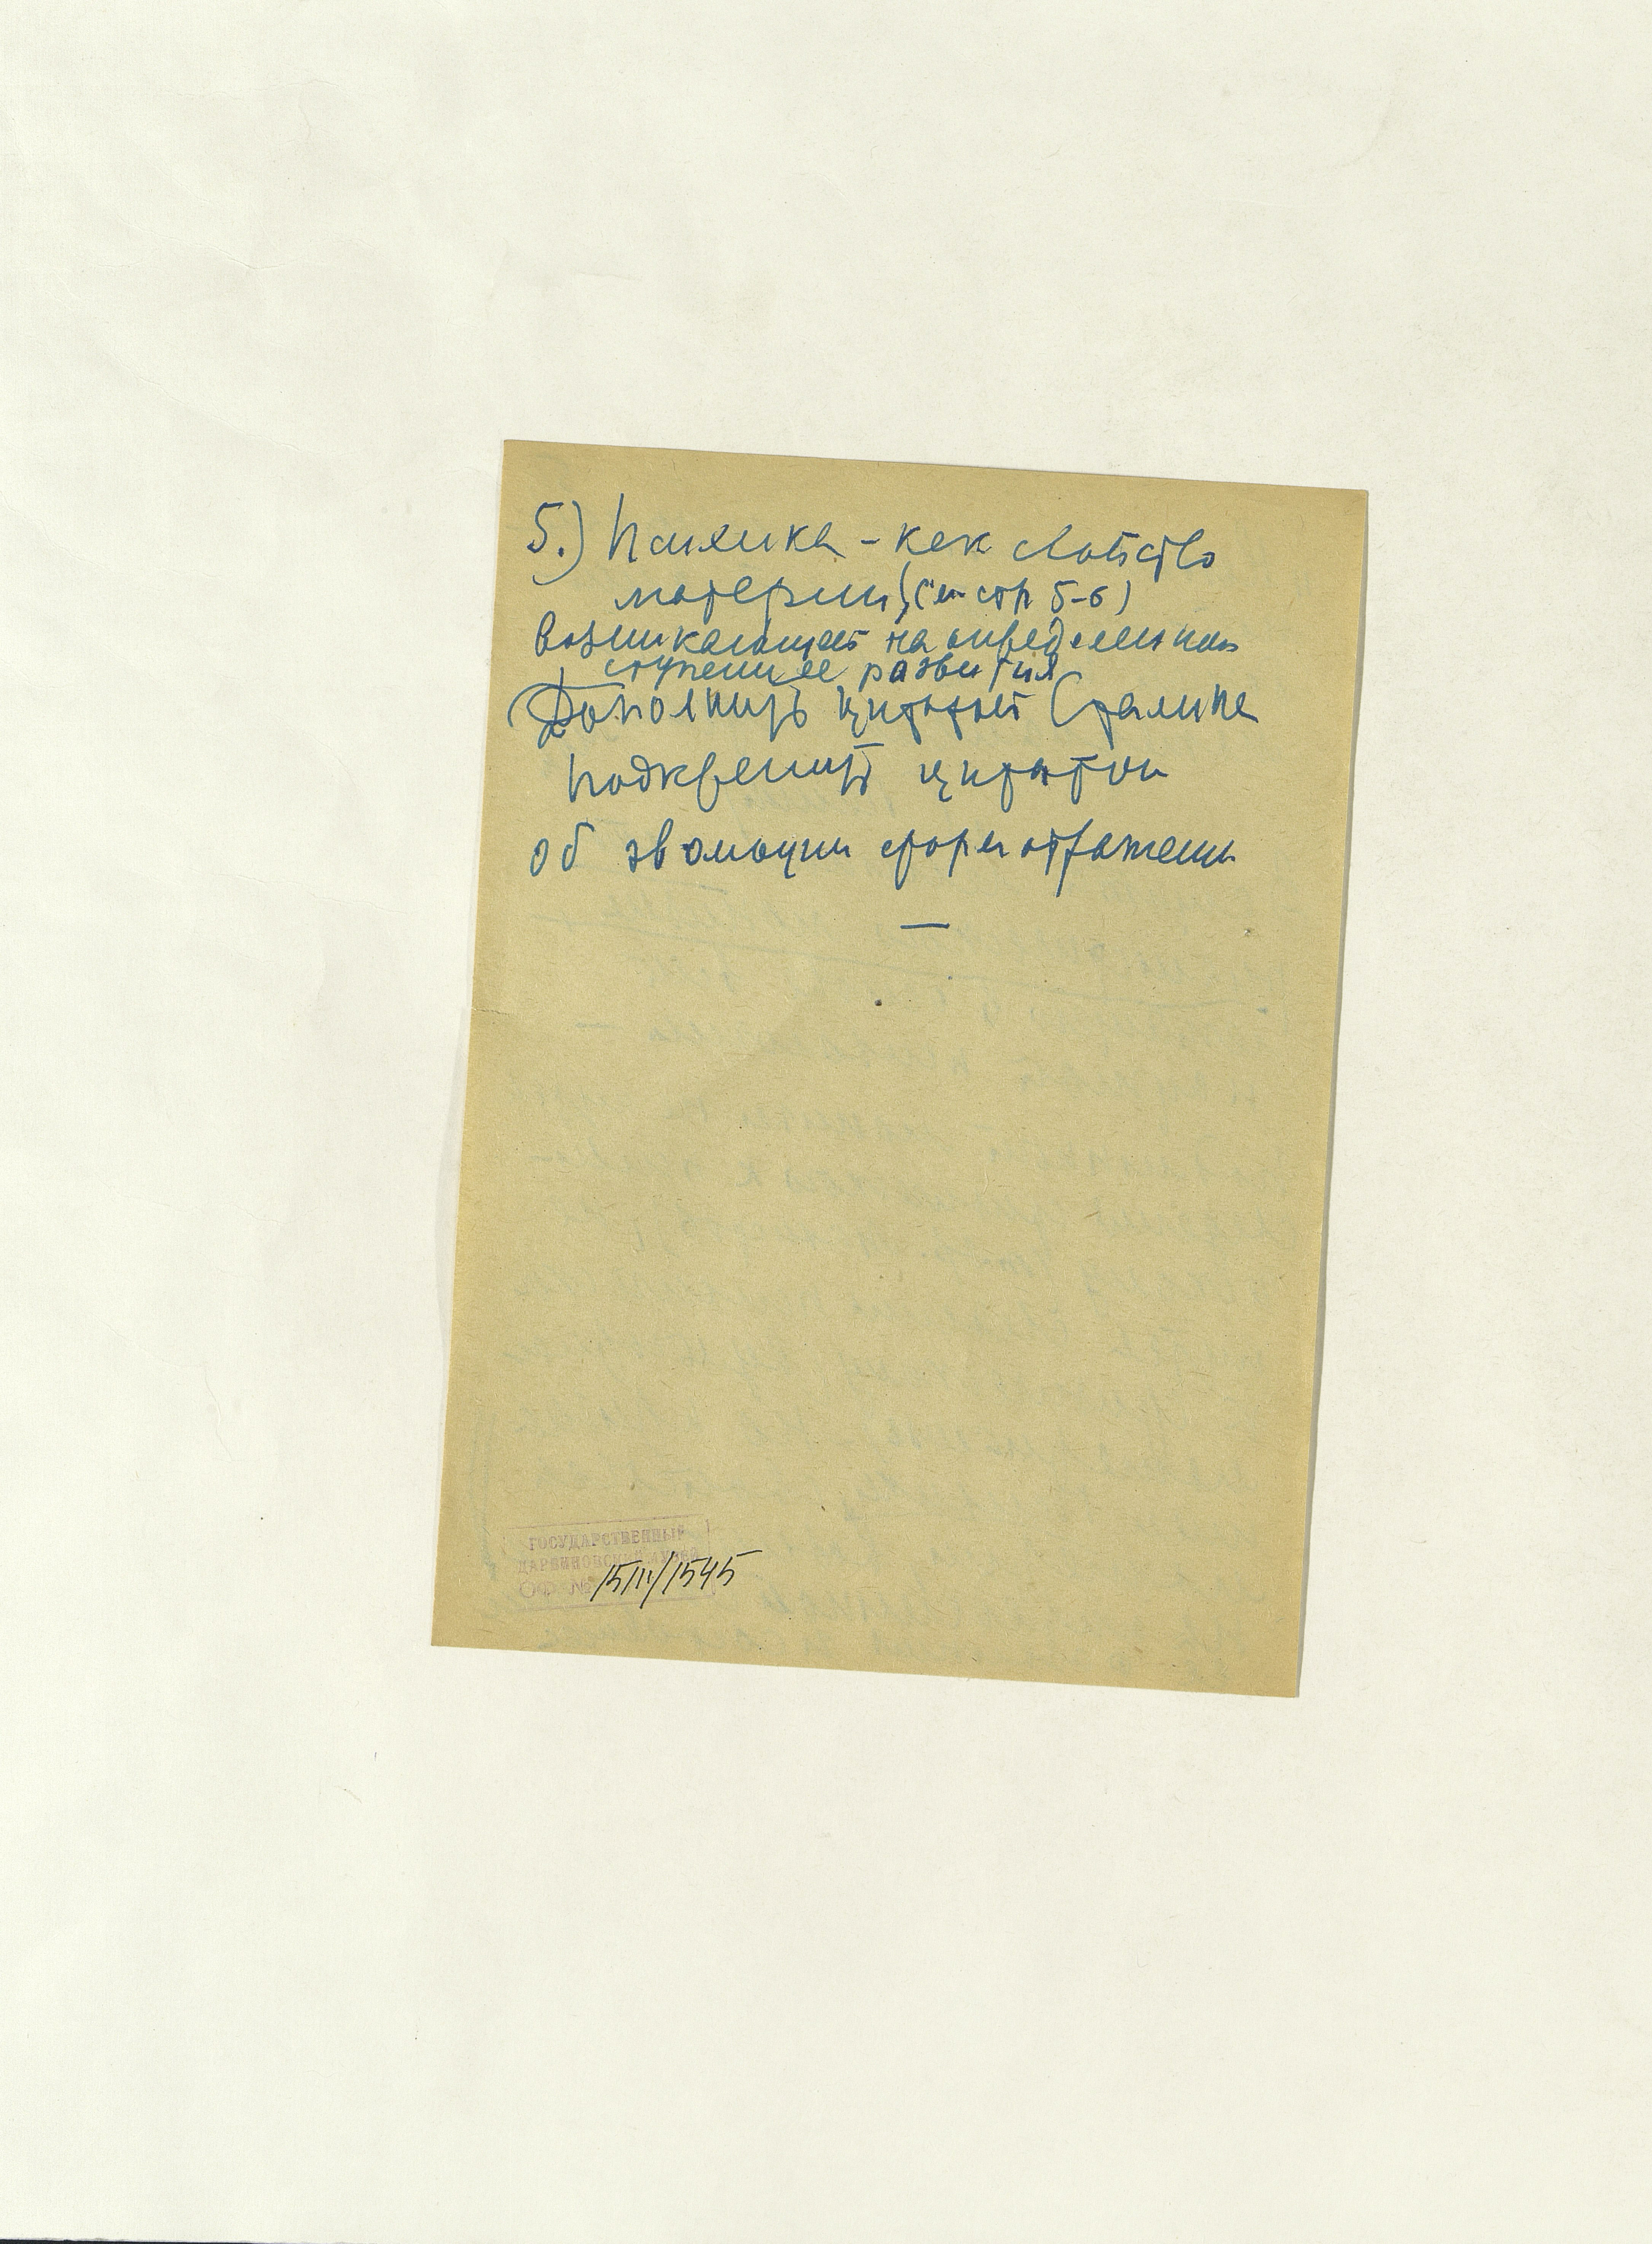 5.) Психика – как свойство
материи, (см стр 5-6)
возникающее на определенной
ступени ее развития
Дополнить цитатой Сталина
Подкрепить цитатой
об эволюции форм отражения
—
ГОСУДАРСТВЕННЫЙ
ДАРВИНОВСКИЙ МУЗЕЙ
ОФ № 15111/1545